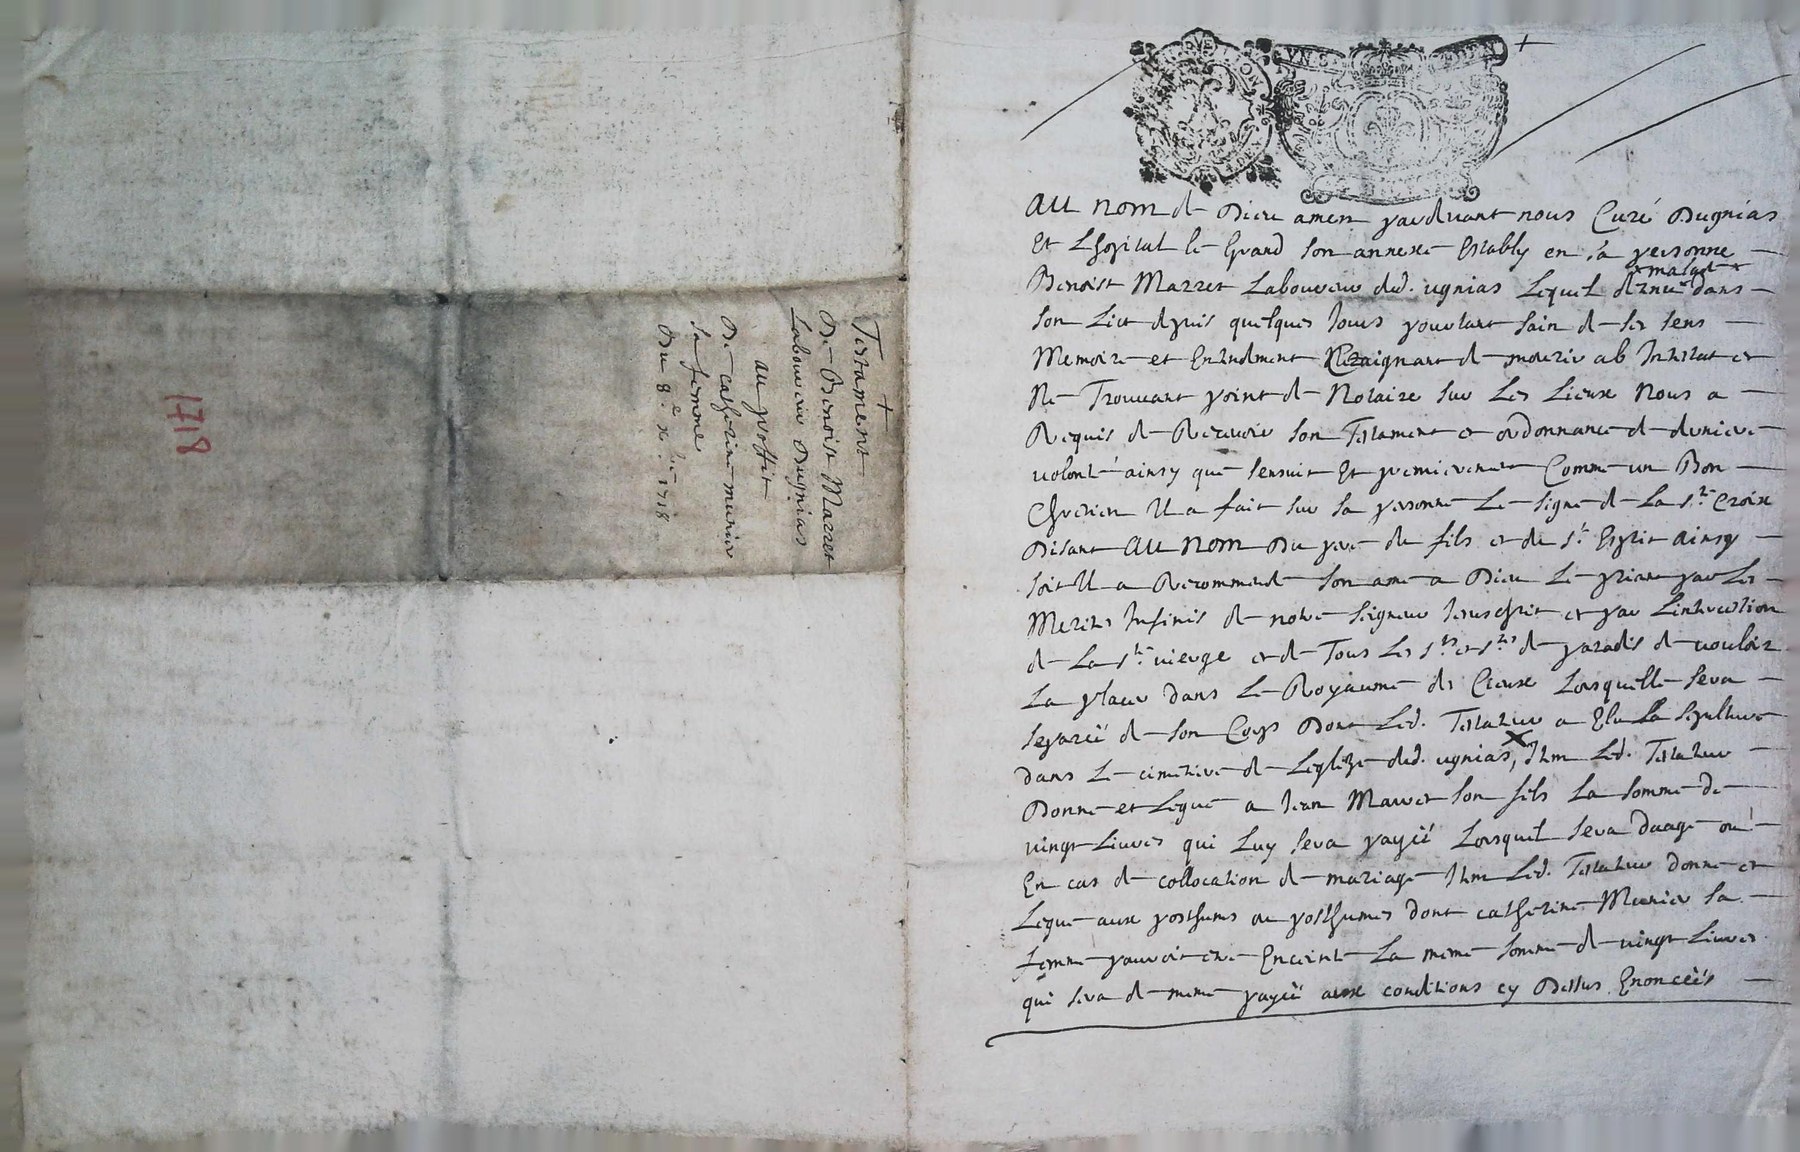 Testament
De Benoist Marret
Laboureur Dugnias
au proffit
De catherine munier
sa femme
Du 8.e xbre. 1718
1718
AU nom de Dieu amen pardevant nous Curé Dugnias
Et Lhopital le Grand son annexe Estably en sa personne
Benoist Marret Laboureur dud. ugnias Lequel detenu malade dans
son Lict depuis quelques Jours pourtant sain de ses sens
Memoire et Entendment Craignant de mourir ab Intestat et
Ne Trouvant point de Notaire sur Les Lieux Nous a
Requis de Recevoir son Testament et ordonnance de derniere
volonté ainsy que sensuit Et premierement Comme un Bon
Chretien Il a fait sur sa personne Le signe de La ste Croix
Disant AU NOM Du pere du fils et du st Esprit ainsy
soit Il a Recommendé son ame a Dieu Le priant par Les
Merites Infinis de notre seigneur Jesuschrit et par Lintercession
de La ste vierge et de Tous Les sts et stes de paradis de vouloir
La placer dans Le Royaume des Cieux Lorsquelle sera
separéé de son Corps Dont Led. Testateur a Elu La sepulture
dans Le cimetiere de Leglize dud. ugnias, Item Led. Testateur
Donne et Legue a Jean Marret son fils La somme de
vingt Livres qui Luy sera payéé Lorsquil sera daage ou
En cas de collocation de mariage Item Led. Testateur donne et
Legue aux posthumes ou posthumes dont catherine Munier sa
femme pourroit etre Enceinte La meme somme de vingt Livres
qui sera de meme payéé aux conditions cy Dessus Enoncéés